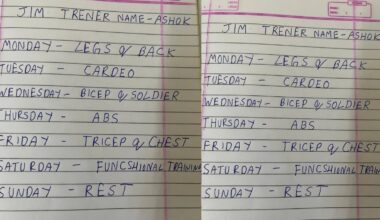 JIM TRENER NAME-ASHOK
MONDAY - LEGS & BACK
TUESDAY - CARDEO
WEDNESDAY - BICEP & SOLDIER
THURSDAY - ABS
FRIDAY - TRICEP & CHEST
SATURDAY - FUNCSHIONAL TRAINING
SUNDAY - REST
JIM TRENER NAME-ASHOK
MONDAY - LEGS & BACK
TUESDAY - CARDEO
WEDNESDAY - BICEP & SOLDIER
THURSDAY - ABS
FRIDAY - TRICEP & CHEST
SATURDAY - FUNCSHIONAL TRAINING
SUNDAY - REST